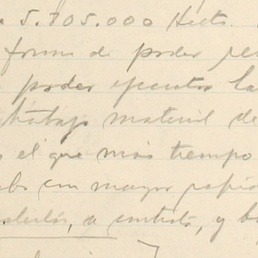 5.705.000 Hects.
forma de poder re
poder ejecutar la
trabajo material de
el que más tiempo
con mayor rapid
, a contrato, y b